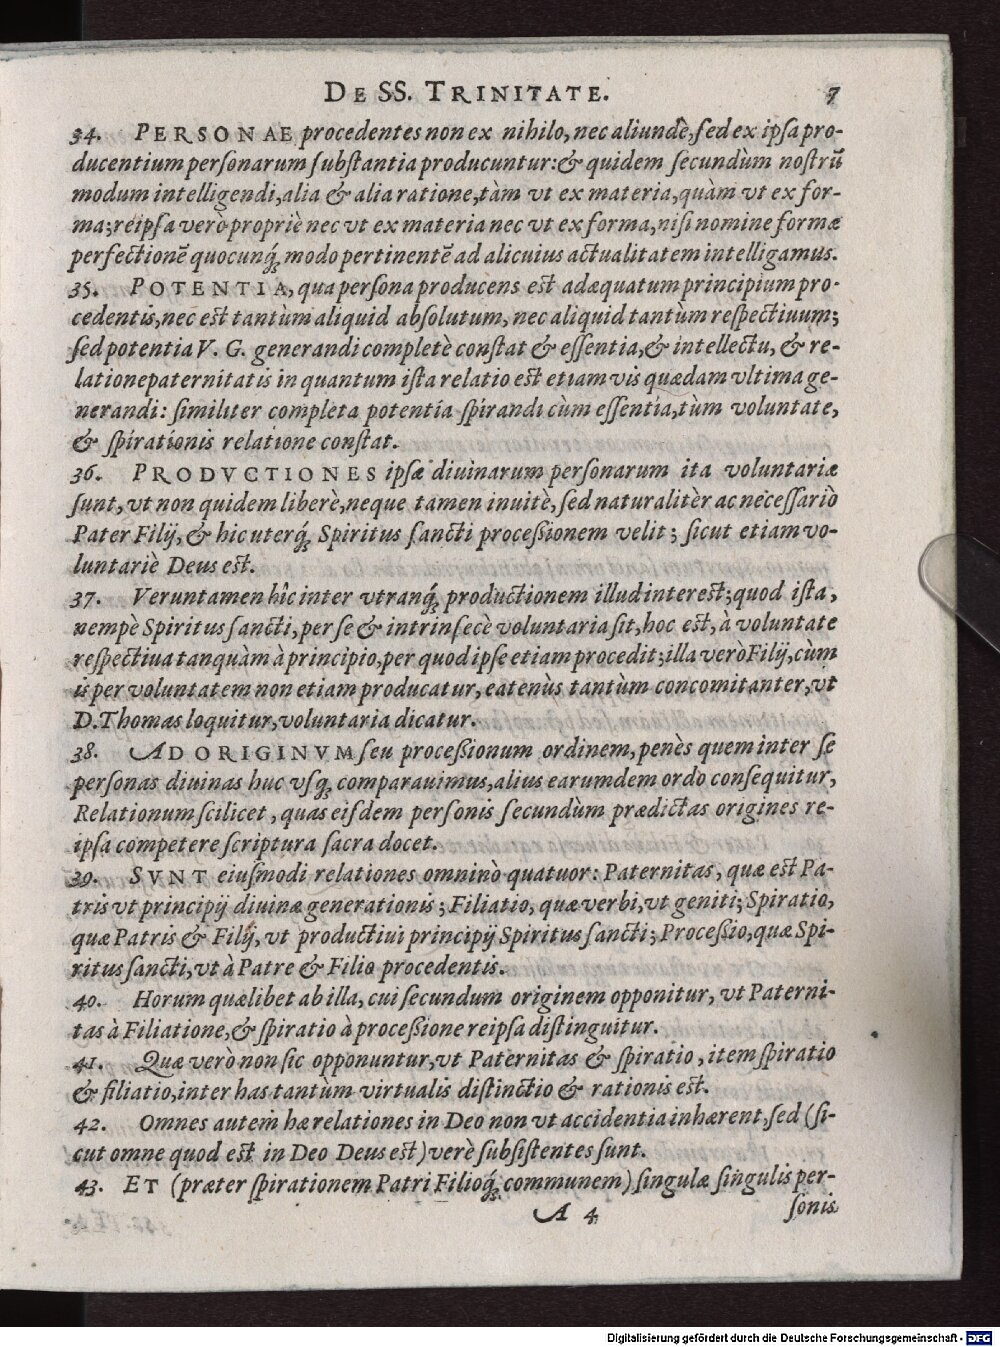 DE SS. TRINITATE. 7
34. PERSONAE procedentes non ex nihilo, nec aliundè, sed ex ipsa pro-
ducentium personarum substantia producuntur: & quidem secundùm nostrũ
modum intelligendi, alia & alia ratione, tàm vt ex materia, quàm vt ex for-
ma; reipsa verò propriè nec vt ex materia nec vt ex forma, nisi nomine formæ
perfectionẽ quocunq́; modo pertinentẽ ad alicuius actualitatem intelligamus.
35. POTENTIA, qua persona producens est adæquatum principium pro-
cedentis, nec est tantùm aliquid absolutum, nec aliquid tantùm respectiuum;
sed potentia V. G. generandi completè constat & essentia, & intellectu, & re-
latione paternitatis in quantum ista relatio est etiam vis quædam vltima ge-
nerandi: similiter completa potentia spirandi cùm essentia, tùm voluntate,
& spirationis relatione constat.
36. PRODVCTIONES ipsæ diuinarum personarum ita voluntariæ
sunt, vt non quidem liberè, neque tamen inuitè, sed naturalitèr ac necessariò
Pater Filij, & hic uterq́; Spiritus sancti processionem velit; sicut etiam vo-
luntariè Deus est.
37. Veruntamen hîc inter vtranq́; productionem illud interest; quod ista,
nempè Spiritus sancti, per se & intrinsecè voluntaria sit, hoc est, à voluntate
respectiua tanquàm à principio, per quod ipse etiam procedit; illa verò Filij, cùm
is per voluntatem non etiam producatur, eatenùs tantùm concomitanter, vt
D. Thomas loquitur, voluntaria dicatur.
38. AD ORIGINVM seu processionum ordinem, penès quem inter se
personas diuinas huc vsq; comparauimus, alius earumdem ordo consequitur,
Relationum scilicet, quas eisdem personis secundùm prædictas origines re-
ipsa competere scriptura sacra docet.
39. SVNT eiusmodi relationes omninò quatuor: Paternitas, quæ est Pa-
tris vt principij diuinæ generationis; Filiatio, quæ verbi, vt geniti; Spiratio,
quæ Patris & Filij, vt productiui principij Spiritus sancti; Processio, quæ Spi-
ritus sancti, vt à Patre & Filio procedentis.
40. Horum quælibet ab illa, cui secundum originem opponitur, vt Paterni-
tas à Filiatione, & spiratio à processione reipsa distinguitur.
41. Quæ verò non sic opponuntur, vt Paternitas & spiratio, item spiratio
& filiatio, inter has tantùm virtualis distinctio & rationis est.
42. Omnes autem hæ relationes in Deo non vt accidentia inhærent, sed (si-
cut omne quod est in Deo Deus est) verè subsistentes sunt.
43. ET (præter spirationem Patri Filioq́; communem) singulæ singulis per-
A 4 sonis
Digitalisierung gefördert durch die Deutsche Forschungsgemeinschaft - DFG